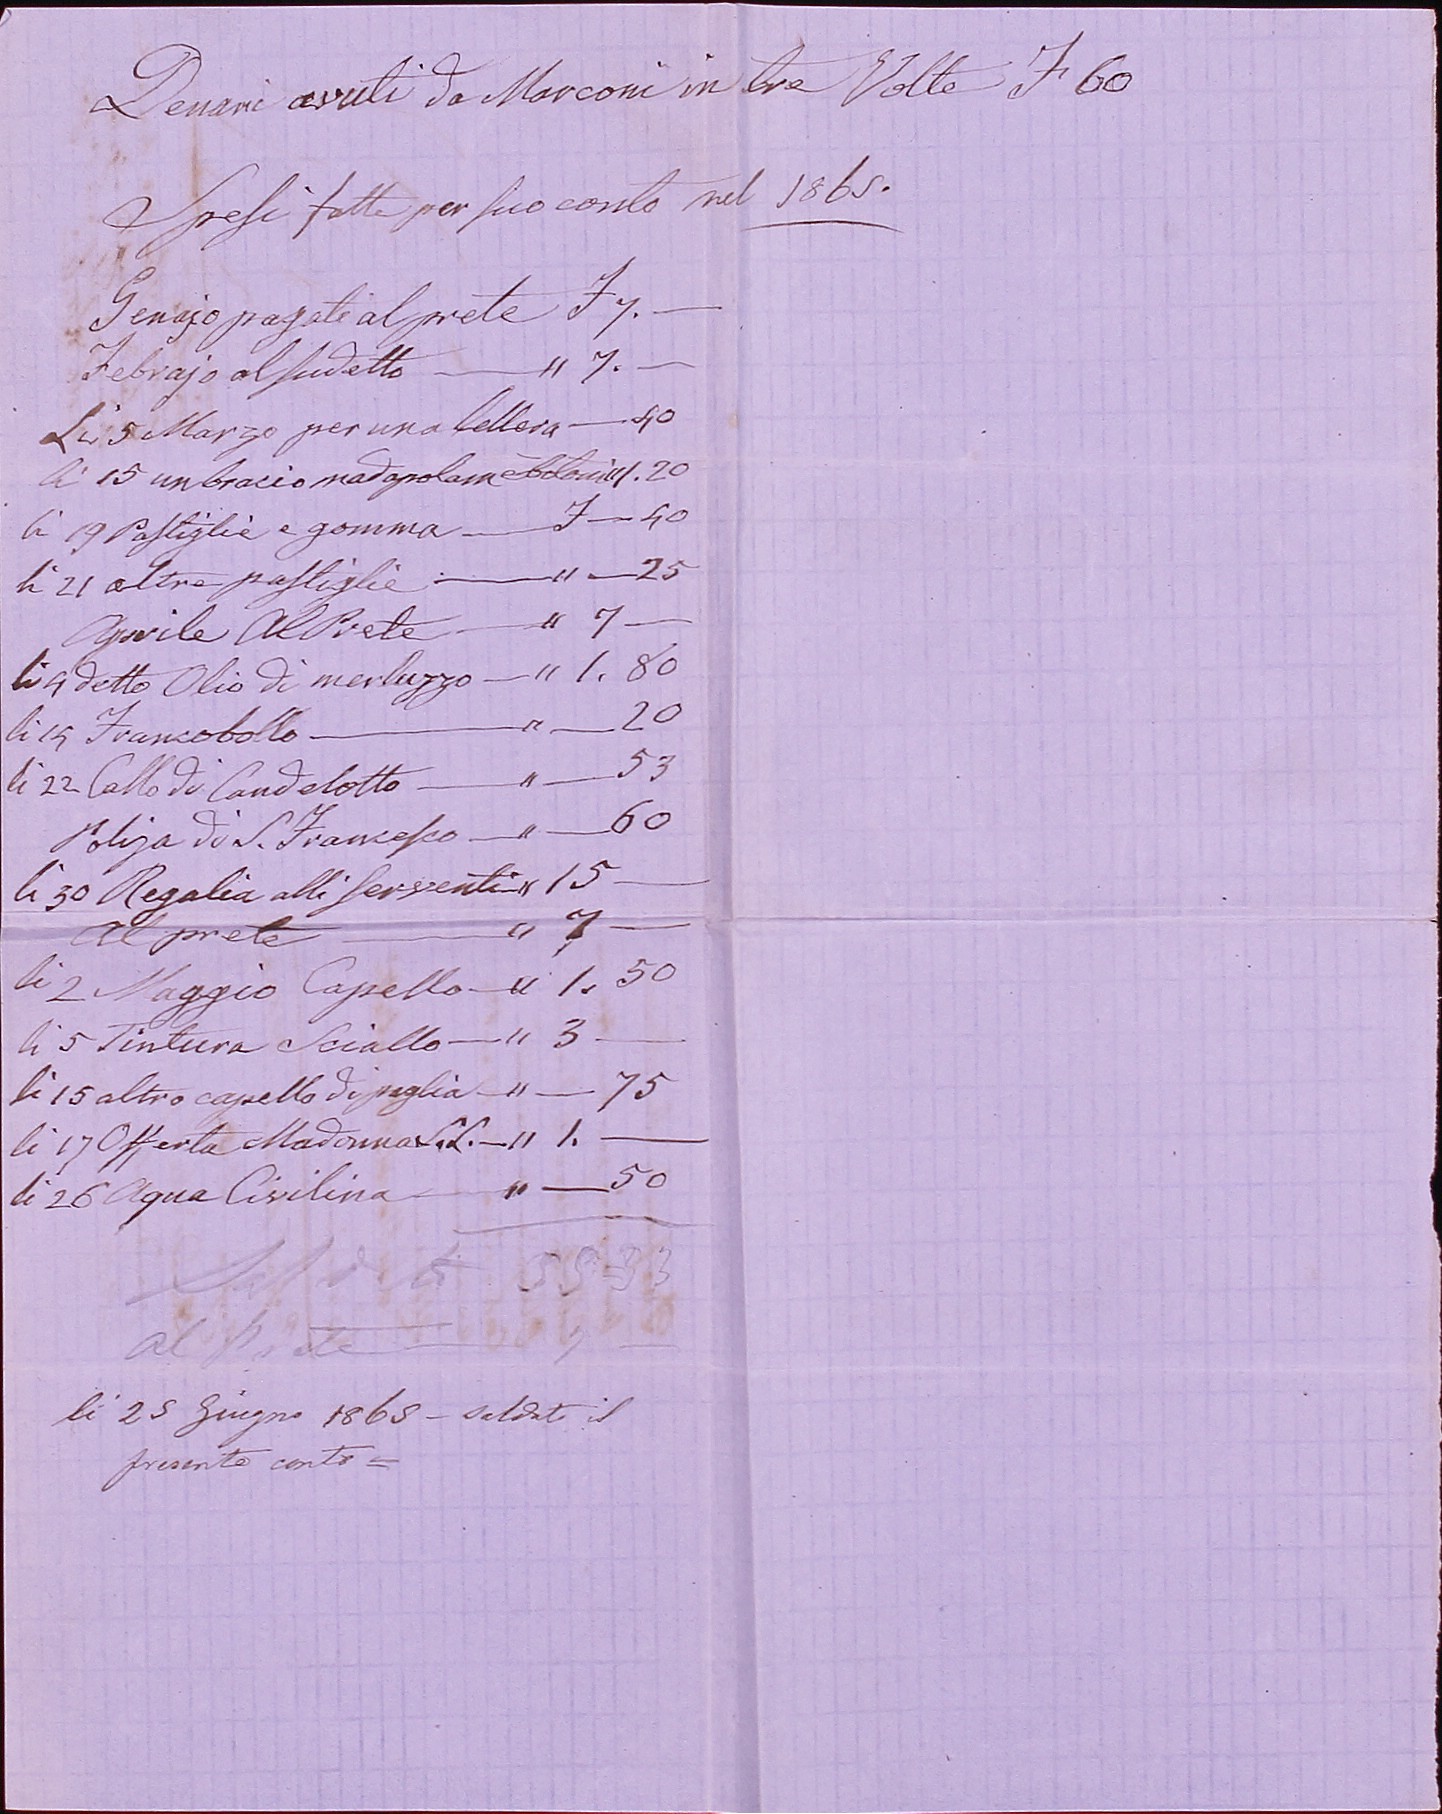 Denari avuti da Marconi in tre Volte F 60
Spesi fatte per suo conto nel 1865.
Genajo pagati al prete F 7. —
Febrajo al sudetto — " 7. —
Li 5 Marzo per una lettera — 40
li 15 un bracio madapolam e botoni " 1.20
li 19 Pastiglie e gomma — F — 40
li 21 altre pastiglie — " — 25
Aprile Al Prete — " 7 —
li 4 detto Olio di merluzzo — " 1. 80
li 14 Francobollo — " — 20
li 22 Callo di Candelotto — " — 53
Poliza di S. Francesco — " — 60
li 30 Regalia alli serventi — " 15 —
Al prete — " 7 —
li 2 Maggio Capello — " 1. 50
li 5 Tintura Sciallo — " 3 —
li 15 altro capello di paglia — " — 75
li 17 Offerta Madonna S.S. — " 1. —
li 26 Aqua Civilina — " — 50
55-33
al Prete — 7 —
li 25 Giugno 1865 – saldato il
presente conto =